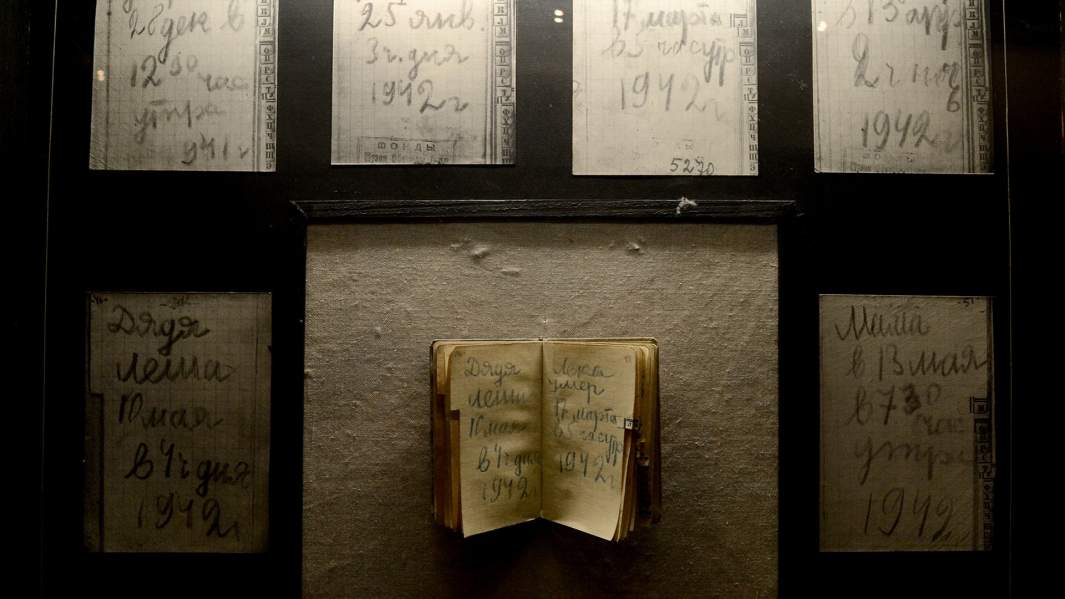 28 ден в
12 30 час
утра
941 г
25 янв.
3 ч. дня
1942 г
ФОНДЫ
17 марта
в 5 час утр
1942 г
5270
в 13 апр
2 ч ноч
1942 г
Дядя
Леша
10 мая
в 4 ч дня
1942 г
Дядя
Леша
10 мая
в 4 ч дня
1942 г
Лека
умер
17 марта
в 5 час утр
1942 г
Мама
в 13 мая
в 7 30
час
утра
1942